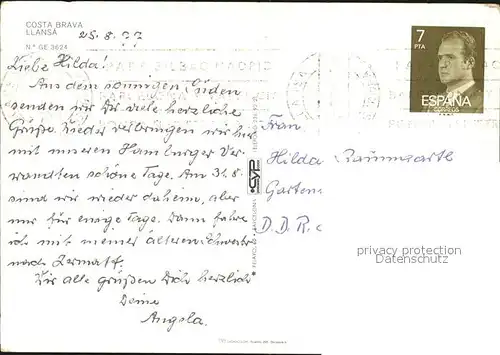 COSTA BRAVA
LLANSÁ
25.8.77
N.º GE 3624
7
PTA
ESPAÑA
CORREOS
Liebe Hilda!
Aus dem sonnigen Süden
senden wir Dir viele herzliche
Grüße. Wieder verbringen wir hier
mit unseren Hamburger Ver-
wandten schöne Tage. Am 31.8.
sind wir wieder daheim, aber
nur für einige Tage. Dann fahre
ich mit meiner älteren Schwester
nach Zermatt.
Wir alle grüßen Dich herzlich
Deine
Angela.
Frau
Hilda Baumgartl
Garten
D.D.R.
privacy protection
Datenschutz